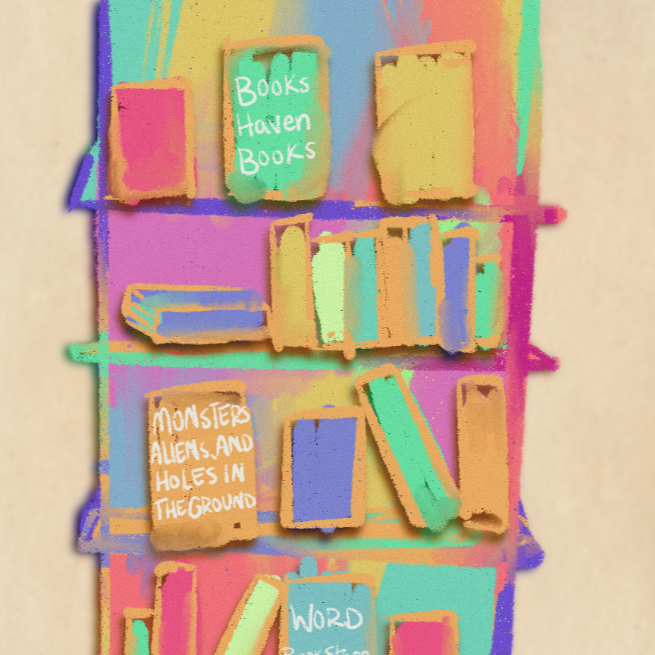 Books
Haven
Books
MONSTERS
ALIENS, AND
HOLES IN
THE GROUND
WORD